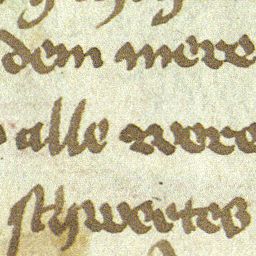 dem mere
alle were
schwertes